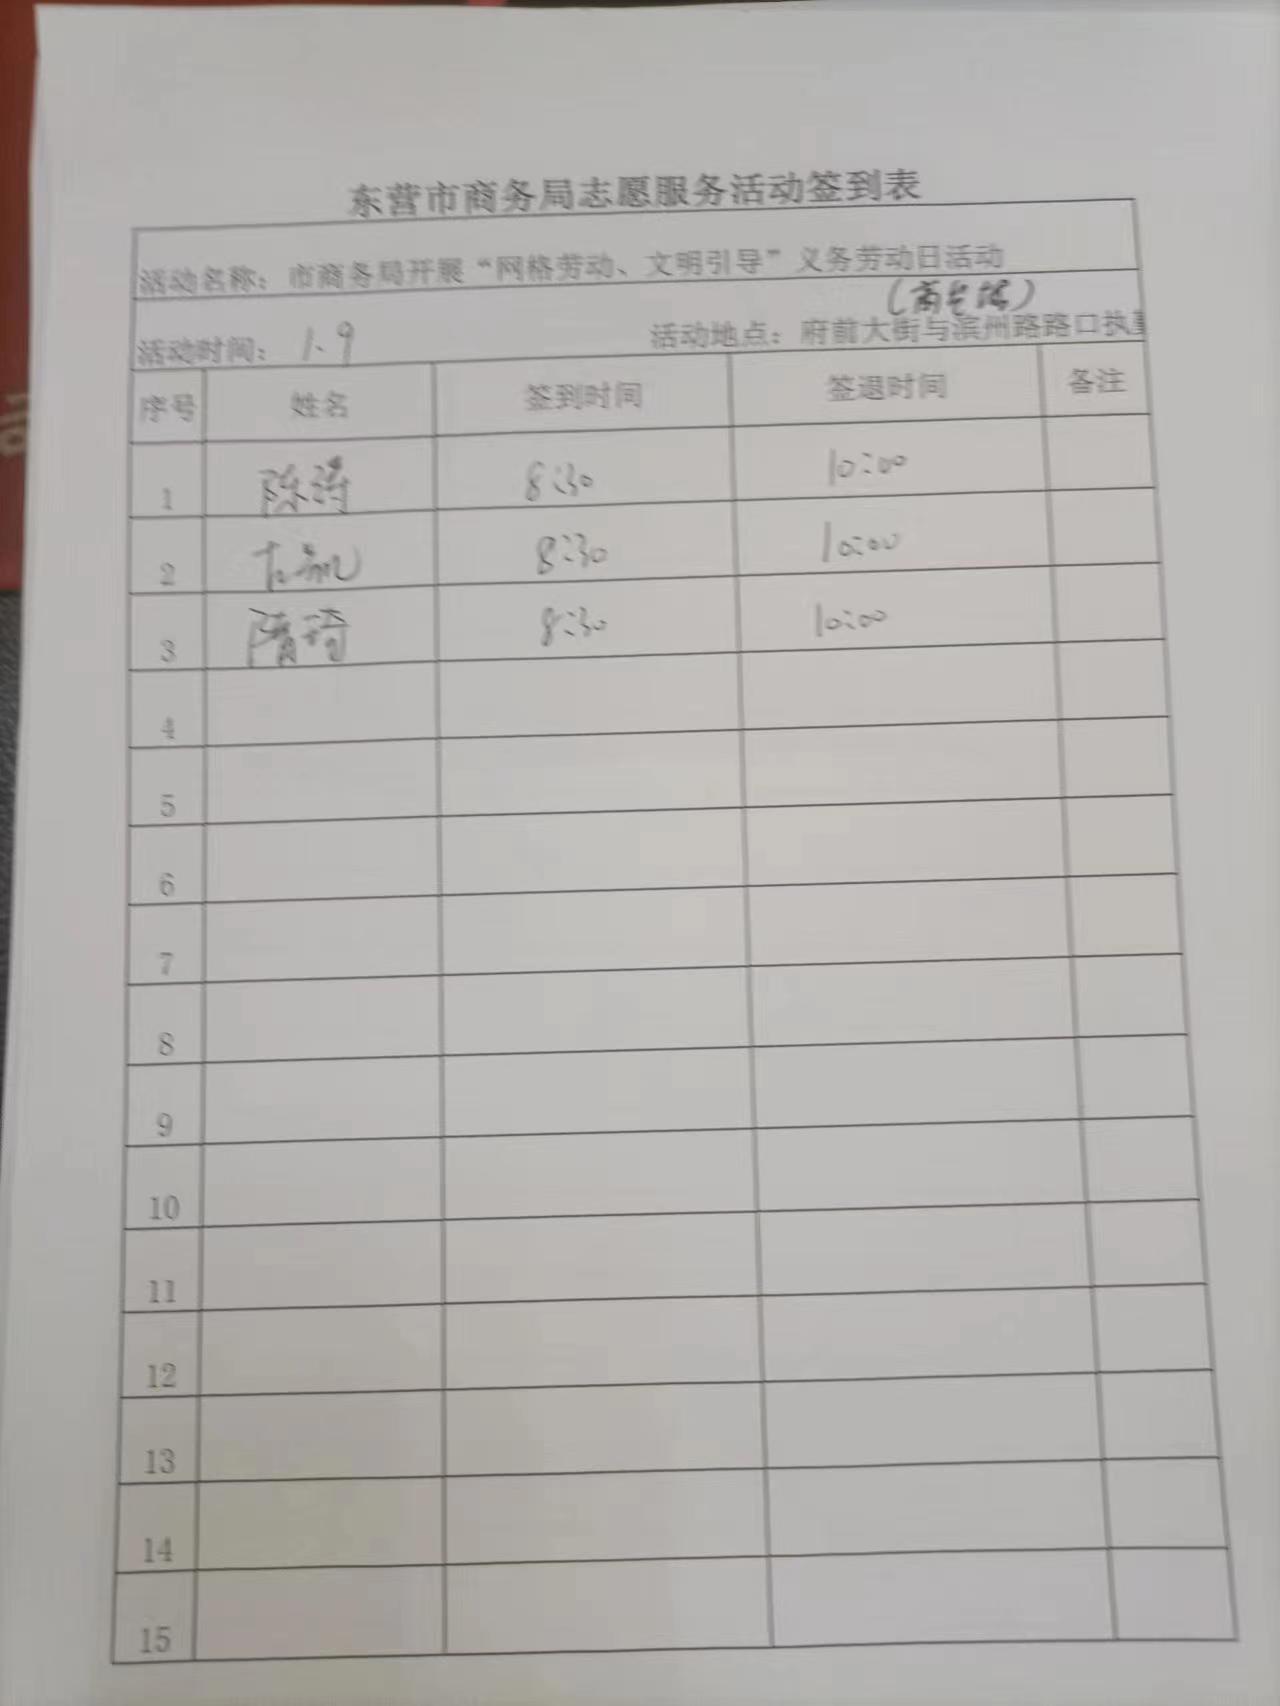 东营市商务局志愿服务活动签到表
活动名称：市商务局开展“网格劳动、文明引导”义务劳动日活动
活动时间： 1.9 活动地点：府前大街与滨州路路口执
序号 姓名 签到时间 签退时间 备注
1 陈涛 8:30 10:00
2 8:30 10:00
3 隋琦 8:30 10:00
4
5
6
7
8
9
10
11
12
13
14
15